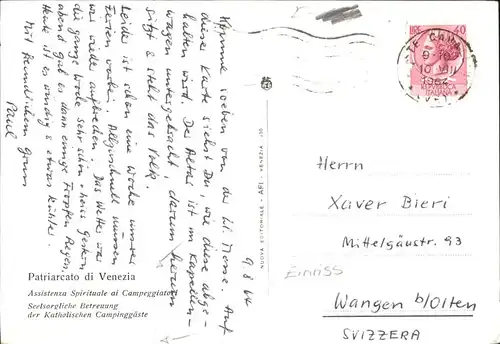 9.8.64
Komme soeben von der hl. Messe. Auf
dieser Karte siehst Du, wie diese abge-
halten wird. Der Altar ist im Kapellen-
wagen untergebracht, darum herum
sitzt & steht das Volk.
Leider ist schon eine Woche unserer
Ferien vorbei. Allzuschnell müssen
wir wieder aufbrechen. Das Wetter war
die ganze Woche sehr schön & heiss. Gestern
abend gab es dann einige Tropfen Regen,
Heute ist es windig & etwas kühler.
Mit freundlichem Gruss
Paul
Patriarcato di Venezia
Assistenza Spirituale ai Campeggiatori
Seelsorgliche Betreuung
der Katholischen Campinggäste
NUOVA EDITORIALE - AFI - VENEZIA
LIRE 40
REPVBBLICA
ITALIANA
Herrn
Xaver Bieri
Mittelgäustr. 93
Einriss
Wangen b/Olten
SVIZZERA